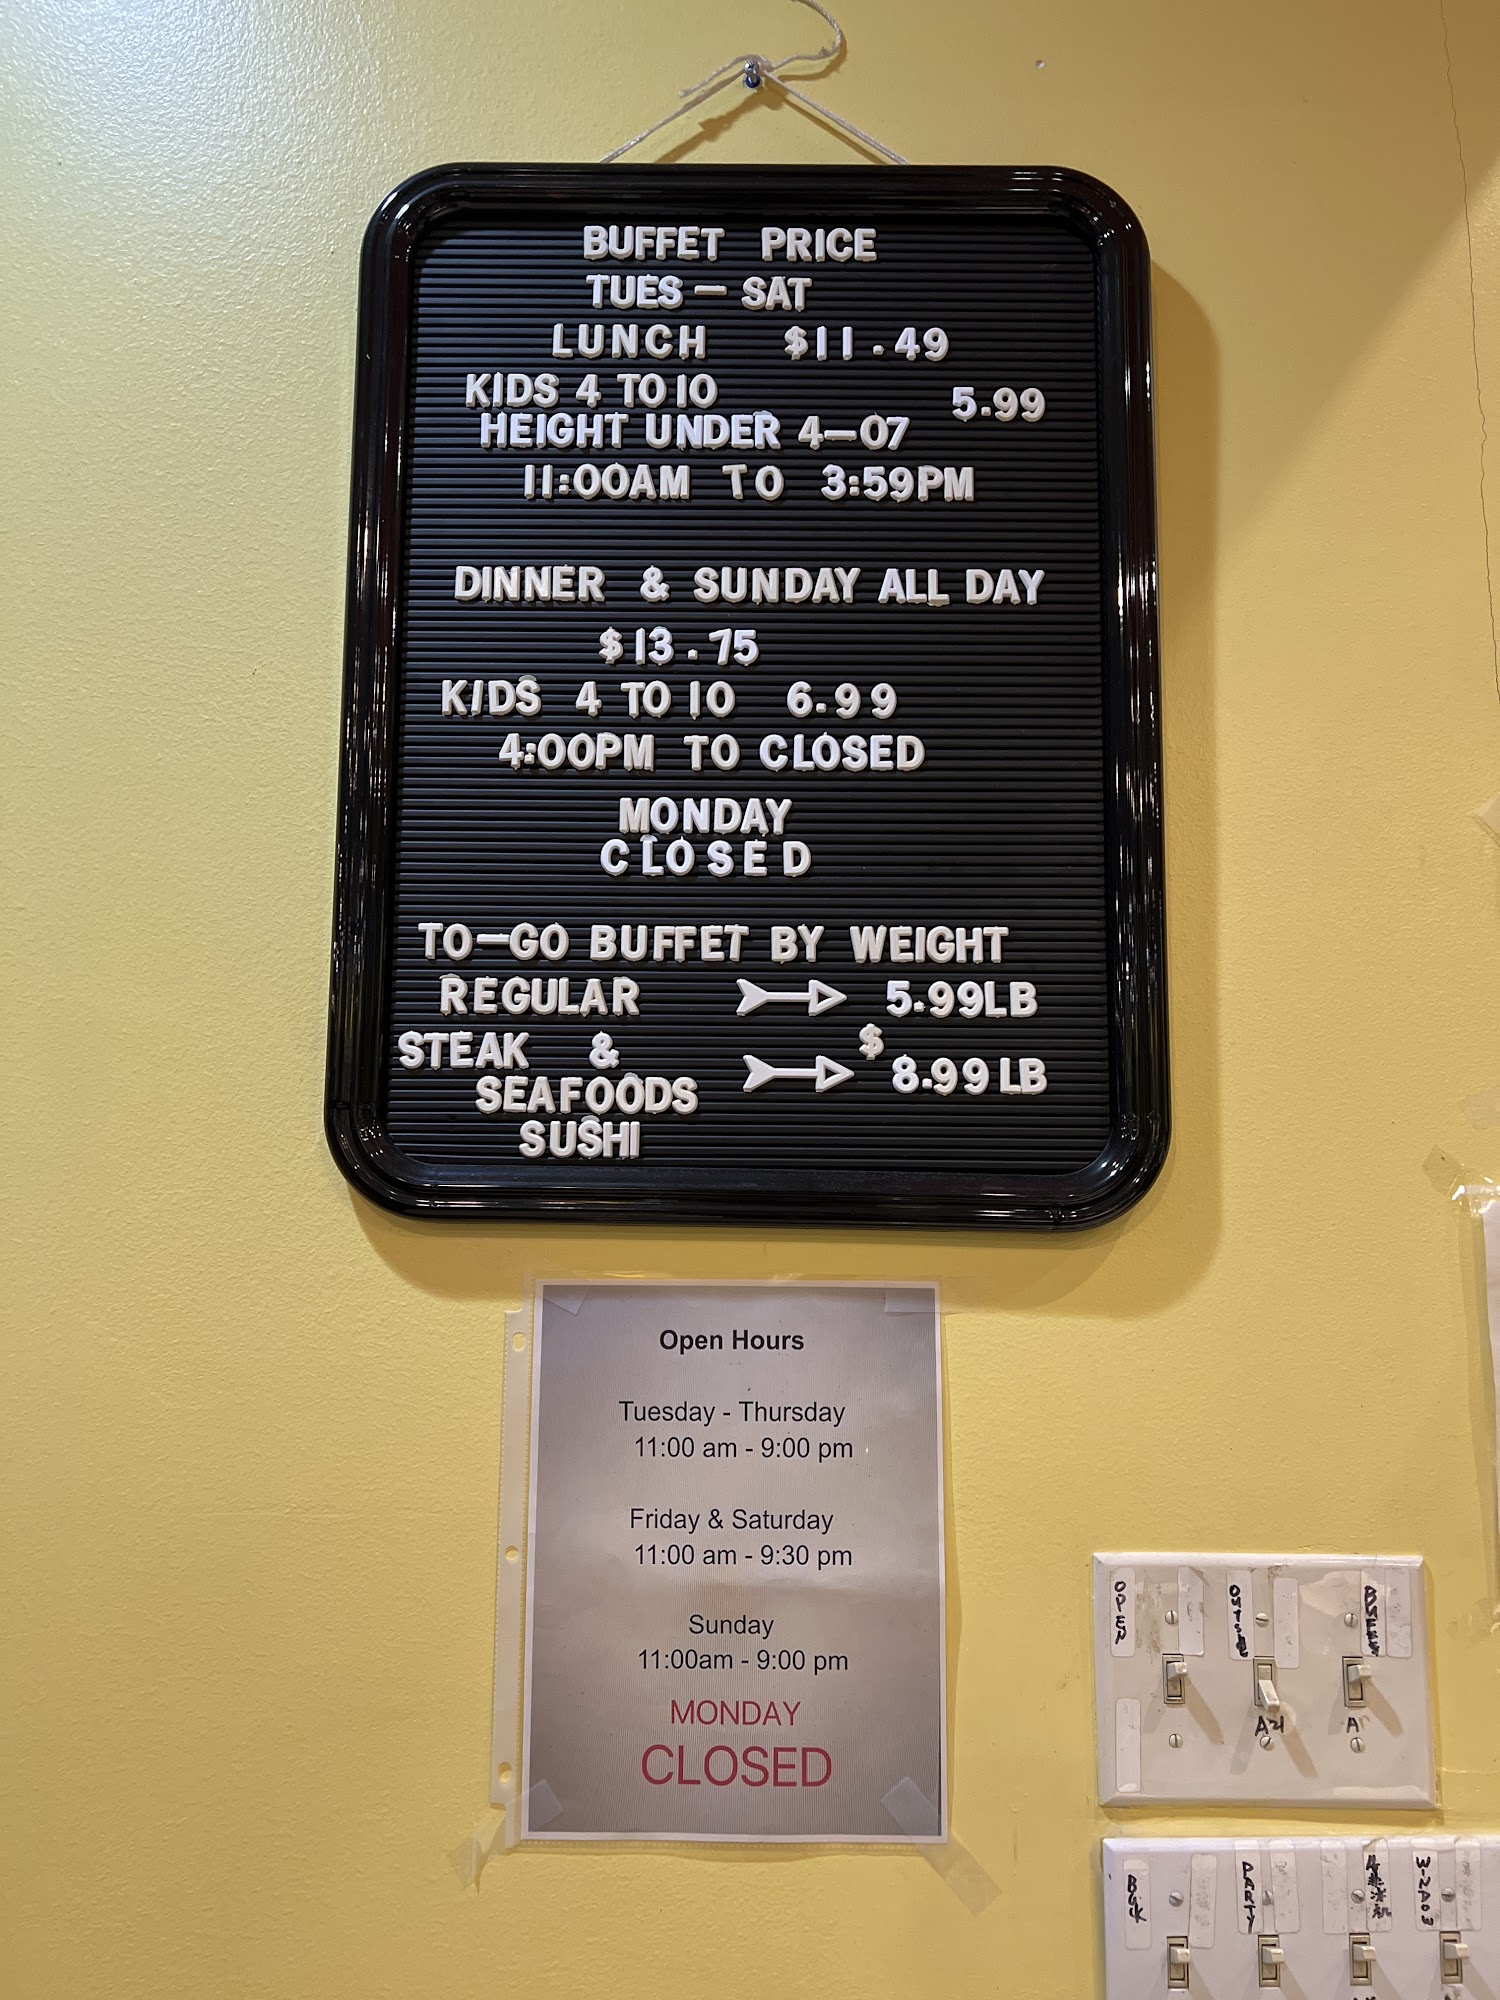 BUFFET PRICE
TUES - SAT
LUNCH $11.49
KIDS 4 TO 10 5.99
HEIGHT UNDER 4-07
11:00AM TO 3:59PM
DINNER & SUNDAY ALL DAY
$13.75
KIDS 4 TO 10 6.99
4:00PM TO CLOSED
MONDAY
CLOSED
TO-GO BUFFET BY WEIGHT
REGULAR 5.99LB
STEAK & $
SEAFOODS 8.99 LB
SUSHI
Open Hours
Tuesday - Thursday
11:00 am - 9:00 pm
Friday & Saturday
11:00 am - 9:30 pm
Sunday
11:00am - 9:00 pm
MONDAY
CLOSED
OPEN
PARTY